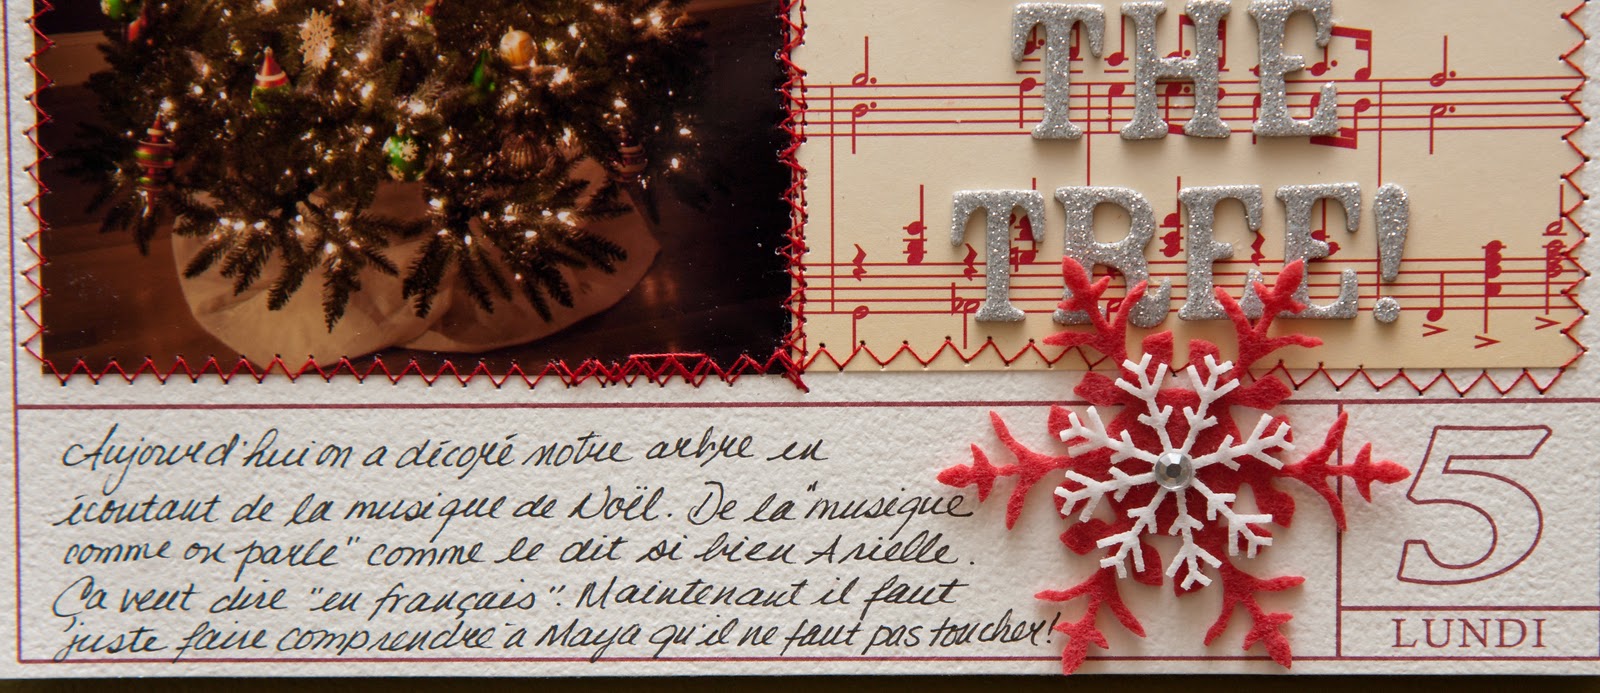 THE
TREE!
Aujourd'hui on a décoré notre arbre en
écoutant de la musique de Noël. De la "musique
comme on parle" comme le dit si bien Arielle.
Ça veut dire "en français". Maintenant il faut
juste faire comprendre à Maya qu'il ne faut pas toucher!
5
LUNDI